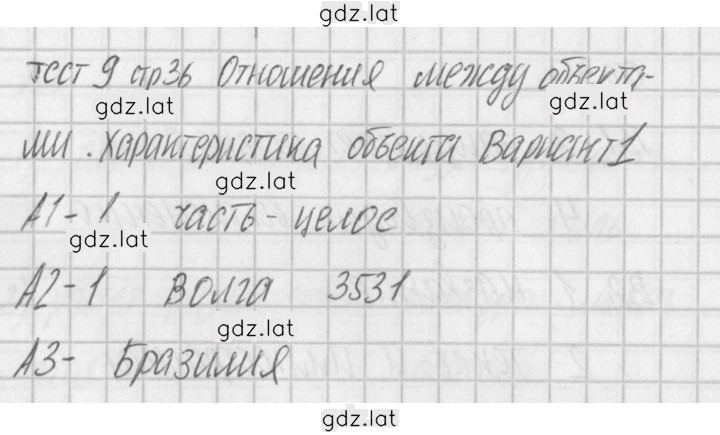 gdz.lat
тест 9 стр36 Отношения между объекта-
gdz.lat gdz.lat
ми. Характеристика объекта Вариант 1
gdz.lat
А1-1 часть-целое
gdz.lat
А2-1 Волга 3531
gdz.lat
А3- Бразилия
gdz.lat